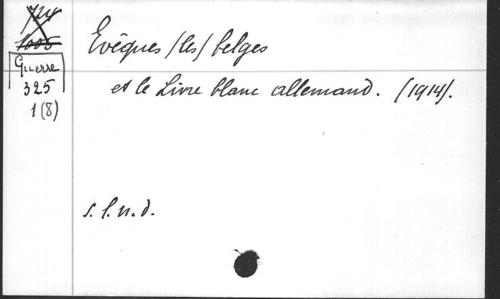 Guerre
325
1(8)
Evêques /les/ belges
et le Livre blanc allemand. (1914).
s.l.n.d.